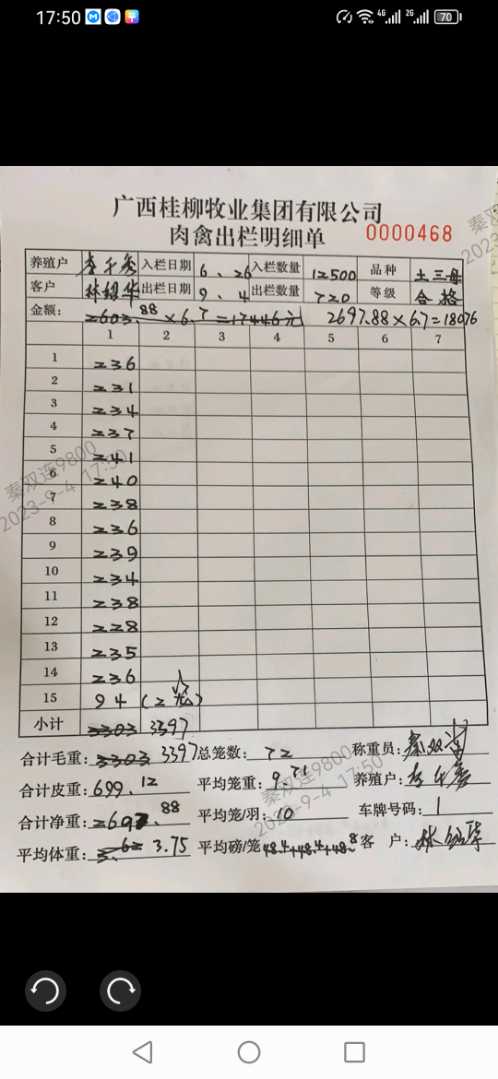 17:50 4G 2G 70
广西桂柳牧业集团有限公司
肉禽出栏明细单 0000468
养殖户 入栏日期 6.26 入栏数量 12500 品种 土三母
客户 林绍华 出栏日期 9.4 出栏数量 720 等级 合格
金额: 2603.88×6.7=17446元 2697.88×6.7=18076
1 2 3 4 5 6 7
1 236
2 231
3 234
4 237
5 241
6 240
7 238
8 236
9 239
10 234
11 238
12 228
13 235
14 236
15 94 (2笼)
小计 3303 3397
合计毛重: 3303 3397 总笼数: 72 称重员: 秦双连
合计皮重: 699.12 平均笼重: 9.71 养殖户:
合计净重: 2697.88 平均笼/羽: 10 车牌号码: 1
平均体重: 3.62 3.75 平均磅/笼 48.4+48.4+48.8 客户: 林绍华
秦双连9800
2023-9-4 17:50
秦双连9800
2023-9-4 17:50
秦双
2023